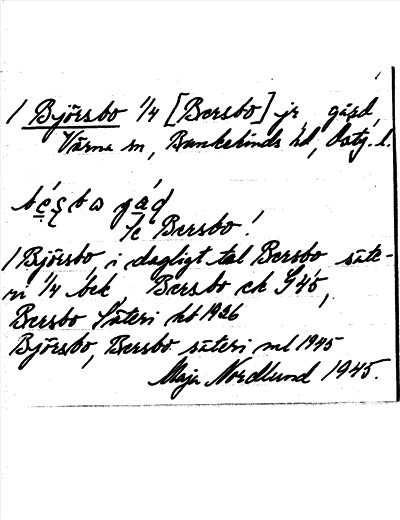 / Björsbo 1/4 [Bersbo] jr, gård,
Värna sn, Bankekinds hd, Östg. l.
Se Bersbo!
/ Björsbo i dagligt tal Bersbo säte-
ri 1/4 bek Bersbo ek S 45,
Bersbo Säteri kb 1926
Björsbo, Bersbo säteri ml 1945
Maja Nordlund 1945.